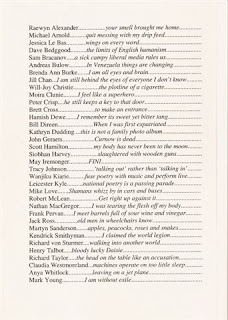 Raewyn Alexander..............your smell brought me home
Michael Arnold..............quit messing with my drip feed
Jessica Le Bas..............wings on every ward
Dave Bedggood..............the limits of English humanism
Sam Bracanov..............a sick campy liberal media rules us
Andreas Bülow..............In Venezuela things are changing
Brenda Ann Burke..............I am all eyes and brain
Jill Chan..............I am still behind the eyes of everyone I don't know
Will-Joy Christie..............the plotline of a cigarette
Moira Clunie..............I feel like a superhero
Peter Crisp..............he still keeps a key to that door
Brett Cross..............to make an entrance
Hamish Dewe..............I remember its sweet yet bitter tang
Bill Direen..............When I was first expatriated
Kathryn Dudding..............this is not a family photo album
John Geraets..............Curnow is dead
Scott Hamilton..............my body has never been to the moon
Siobhan Harvey..............slaughtered with wooden guns
May Iremonger..............FINI
Tracy Johnson..............'talking out' rather than 'talking in'
Wanjiku Kiarie..............fear poetry with music and perform live
Leicester Kyle..............national poetry is a passing parade
Mike Love..............Shamanz whizz by in cars and buses
Robert McLean..............Get right up against it
Nathan MacGregor..............I was tearing the flesh off my body
Frank Pervan..............I meet barrels full of sour wine and vinegar
Jack Ross..............old men in wheelchairs know
Martyn Sanderson..............apples, peacocks, roses and snakes
Kendrick Smithyman..............I claimed the world legion
Richard von Sturmer..............walking into another world
Henry Talbot..............bloody lucky Daisie
Richard Taylor..............the head on the table like an accusation
Claudia Westmoreland..............machines operate on too little sleep
Anya Whitlock..............leaving on a jet plane
Mark Young..............I am without exile